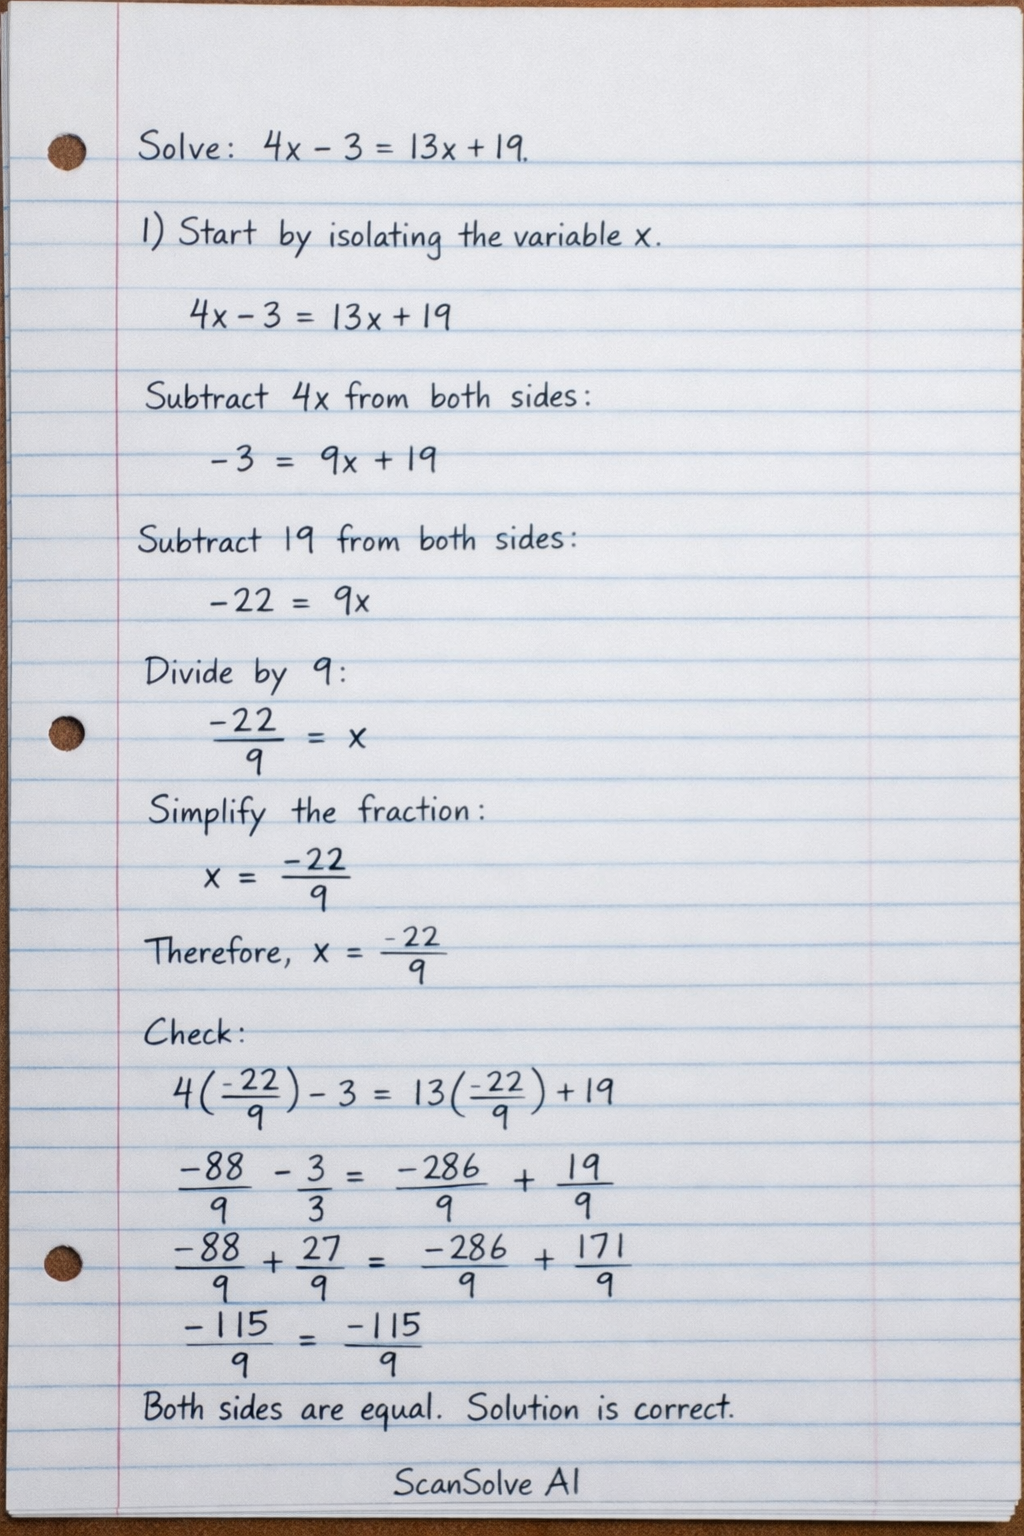 Solve: 4x - 3 = 13x + 19.
1) Start by isolating the variable x.
4x - 3 = 13x + 19
Subtract 4x from both sides:
-3 = 9x + 19
Subtract 19 from both sides:
-22 = 9x
Divide by 9:
-22/9 = x
Simplify the fraction:
x = -22/9
Therefore, x = -22/9
Check:
4(-22/9) - 3 = 13(-22/9) + 19
-88/9 - 3/3 = -286/9 + 19/9
-88/9 + 27/9 = -286/9 + 171/9
-115/9 = -115/9
Both sides are equal. Solution is correct.
ScanSolve AI